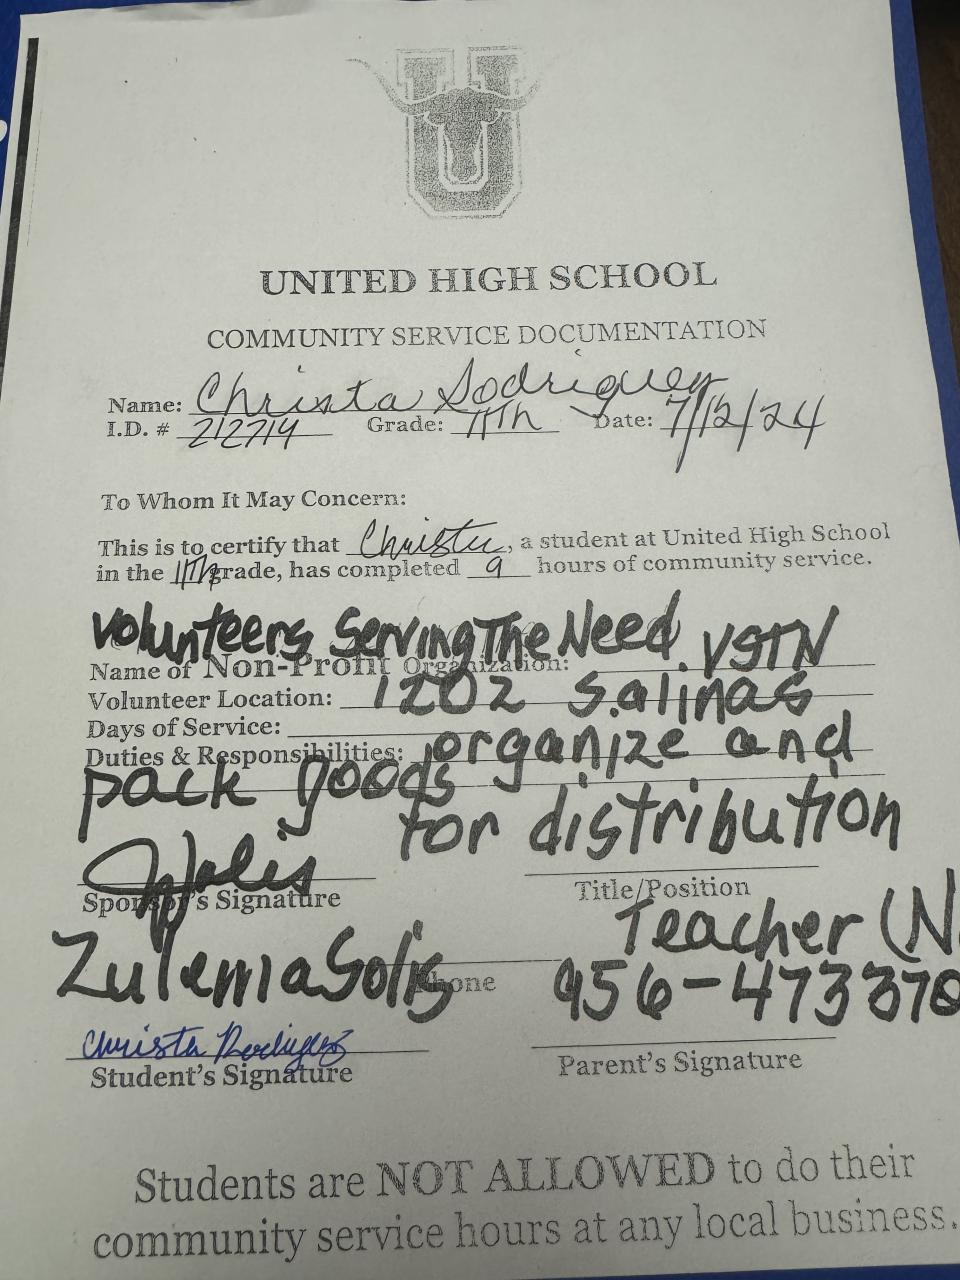 U
UNITED HIGH SCHOOL
COMMUNITY SERVICE DOCUMENTATION
Name: Christa Rodriguez
I.D. # 212719 Grade: 11Th Date: 7/12/24
To Whom It May Concern:
This is to certify that Christa, a student at United High School
in the 11Th grade, has completed 9 hours of community service.
Volunteers Serving The Need. VSTN
Name of Non-Profit Organization:
Volunteer Location: 1202 Salinas
Days of Service:
Duties & Responsibilities: organize and
pack goods
for distribution
Solis
Sponsor's Signature Title/Position
Teacher (N
Zulema Solis Phone 956-473 370
Christa Rodriguez
Student's Signature Parent's Signature
Students are NOT ALLOWED to do their
community service hours at any local business.